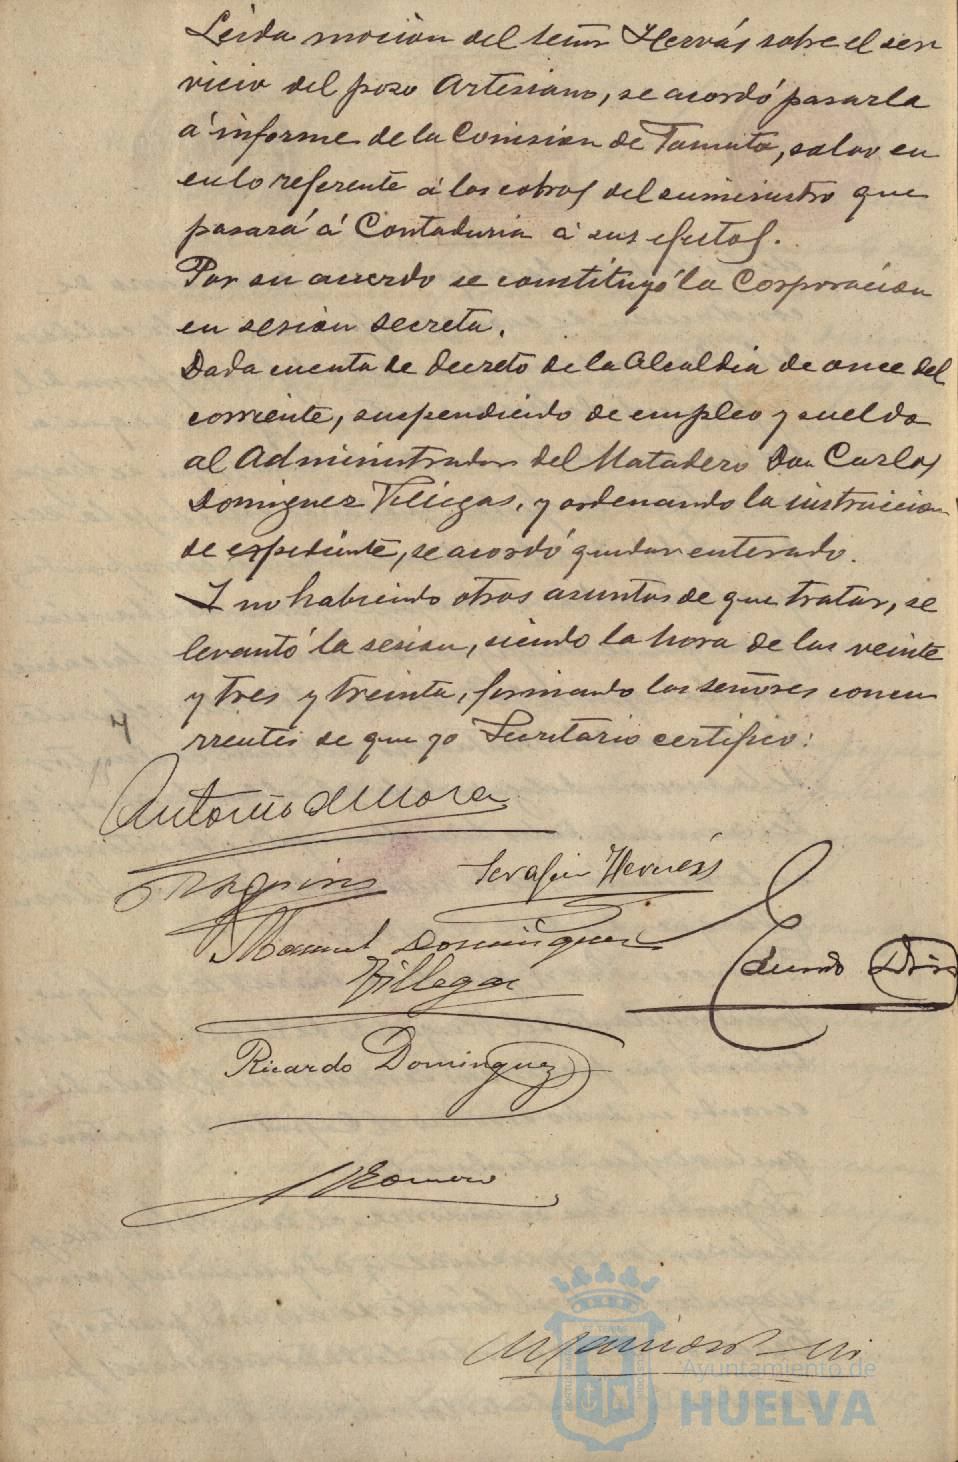 Leida mocion del señor Hervás sobre el ser
vicio del pozo Artesiano, se acordó pasarla
á informe de la Comision de Fomento, salvo en
en lo referente á los cobros del suministro que
pasará á Contaduria á sus efectos.
Por su acuerdo se constituyó la Corporacion
en sesion secreta.
Dada cuenta de decreto de la Alcaldia de once del
corriente, suspendiendo de empleo y sueldo
al Administrador del Matadero Don Carlos
Dominguez Villegas, y ordenando la instruccion
de expediente, se acordó quedar enterado.
Y no habiendo otros asuntos de que tratar, se
levantó la sesion, siendo la hora de las veinte
y tres y treinta, firmando los señores concu
rrentes de que yo Secretario certifico:
Antonio de Mora
Serafin Hervás
Manuel Dominguez
Villegas
Ricardo Dominguez
Romero
Ayuntamiento de
HUELVA